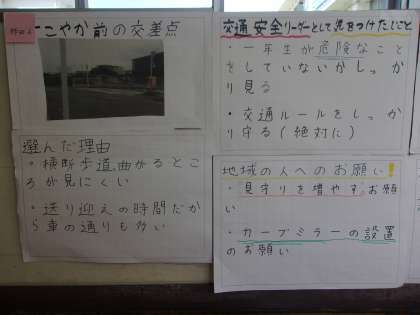 にこやか前の交差点
選んだ理由
・横断歩道、曲がるとこ
ろが見にくい
・送り迎えの時間だか
ら車の通りも多い
交通安全リーダーとして気をつけたいこと
・一年生が危険なこと
をしていないかしっか
り見る
・交通ルールをしっか
り守る(絶対に)
地域の人へのお願い!
・見守りを増やすお願
い
・カーブミラーの設置
のお願い